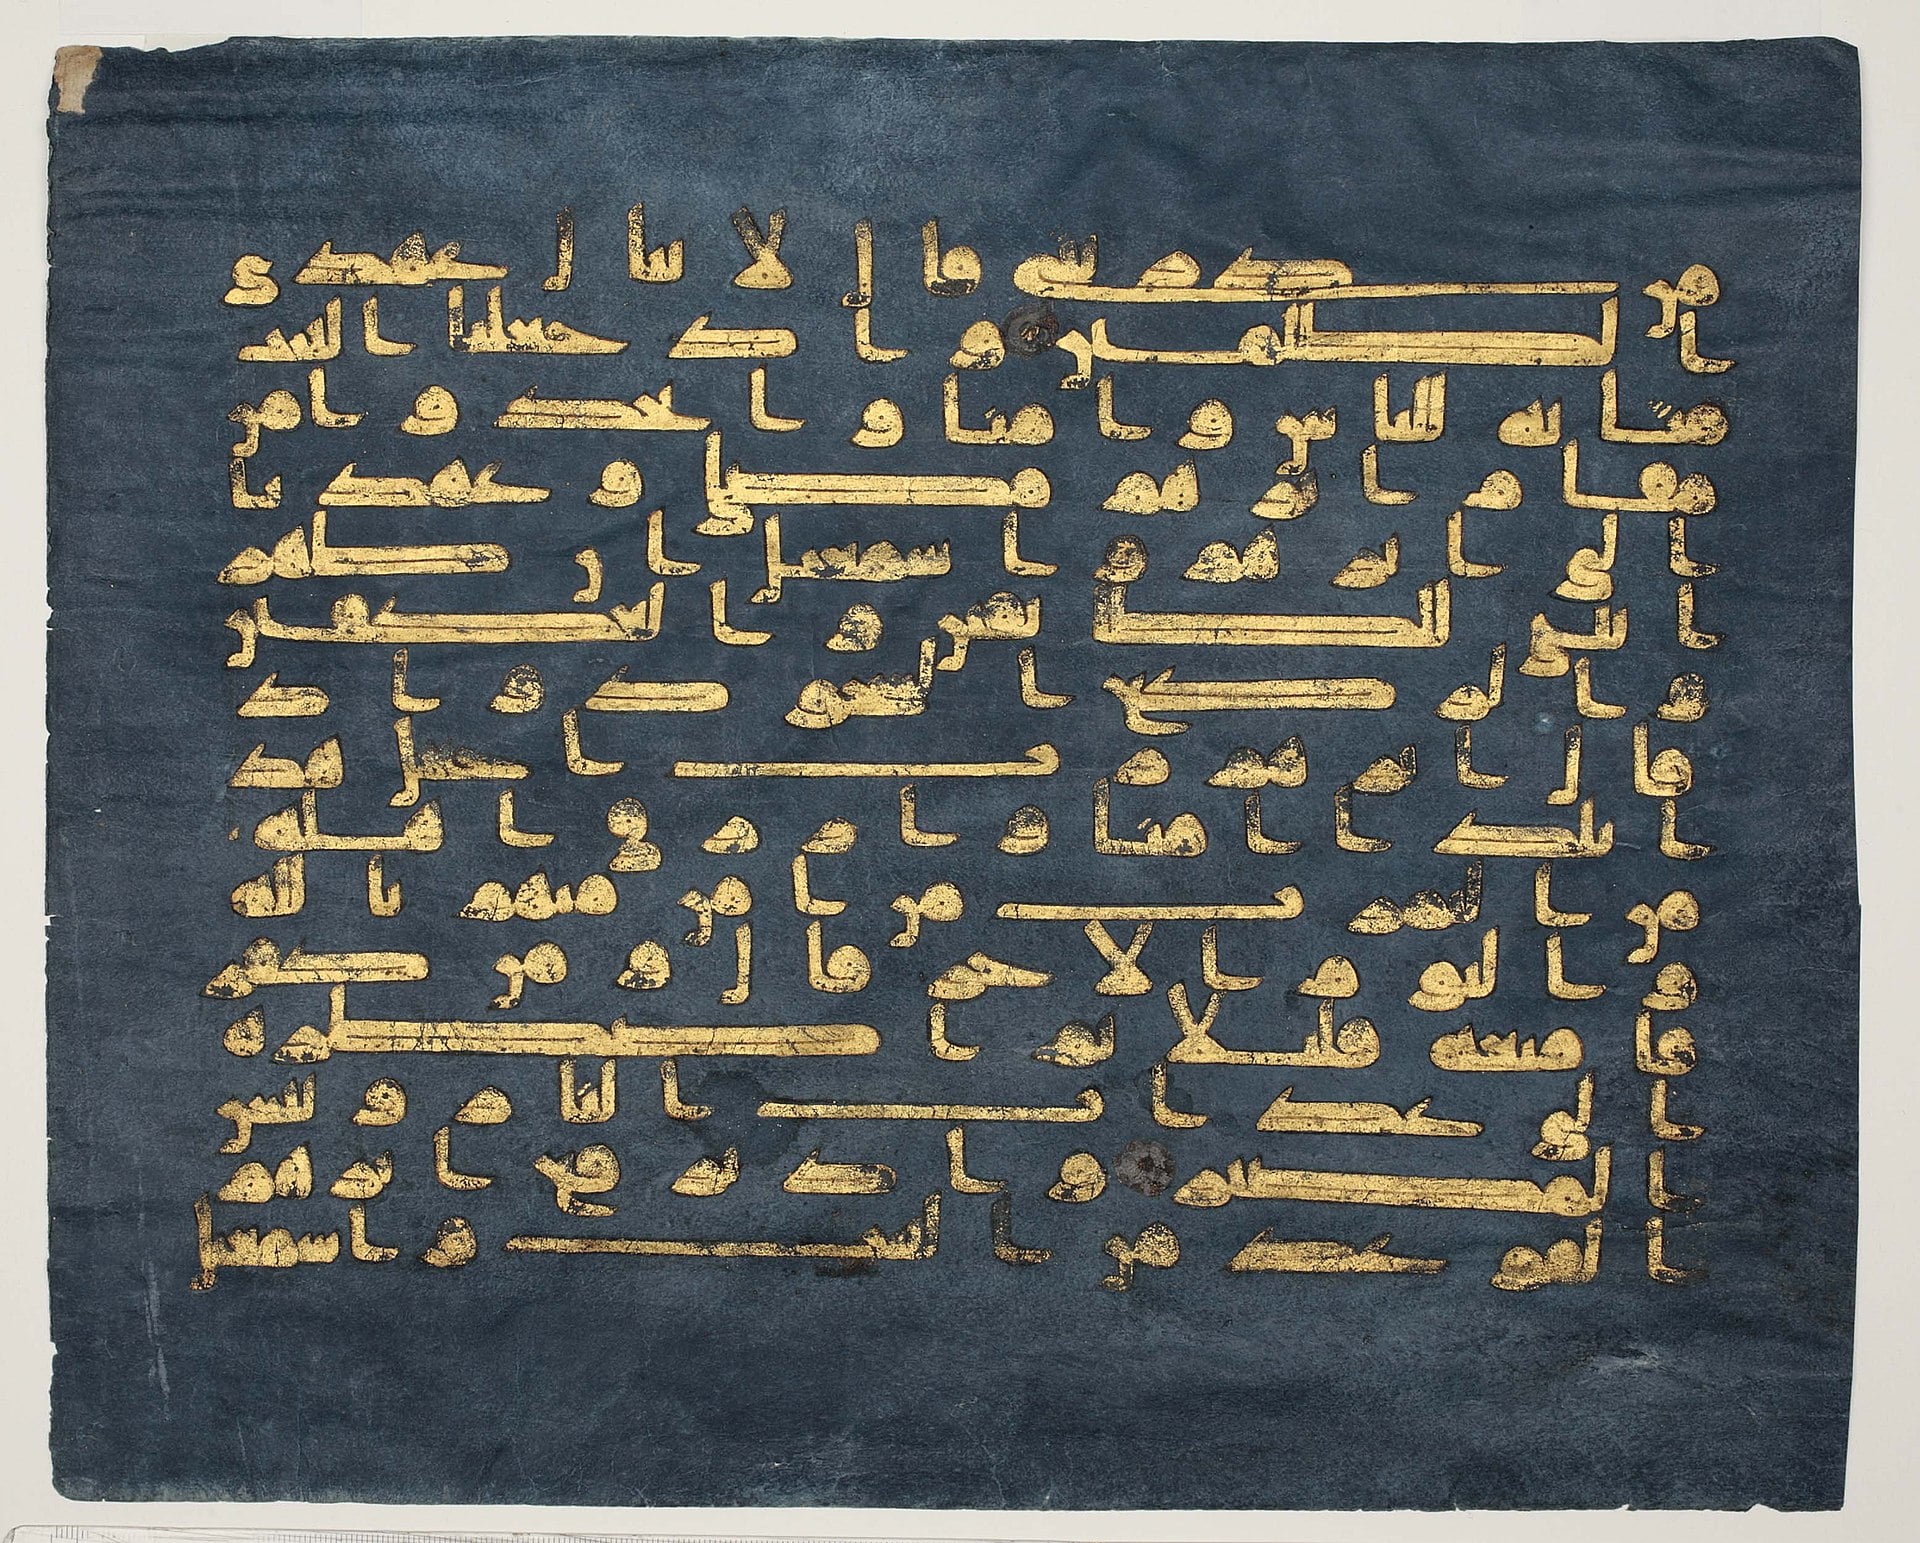 من ذريتي قال لا ينال عهدي
الظلمين واذ جعلنا البيت
مثابة للناس وامنا واتخذوا من
مقام ابرهم مصلى وعهدنا
الى ابرهم واسمعيل ان طهر
ا بيتي للطائفين والعكفين
والركع السجود واذ
قال ابرهم رب اجعل هذ
ا بلدا امنا وارزق اهله
من الثمرت من امن منهم بالله
واليوم الاخر قال ومن كفر
فامتعه قليلا ثم اضطره
الى عذاب النار وبئس
المصير واذ يرفع ابرهم
القوعد من البيت واسمعيل